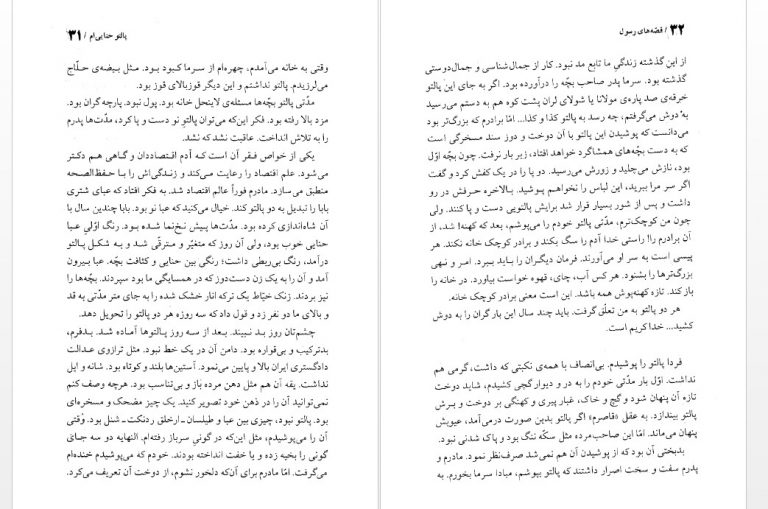 پالتو حنایی‌ام / ۳۱
وقتی به خانه می‌آمدم، چهره‌ام از سرما کبود بود. مثل بیضه‌ی حلّاج
می‌لرزیدم. پالتو نداشتم و این دیگر قوزبالای قوز بود.
مدّتی پالتو بچّه‌ها مسئله‌ی لاینحل خانه بود. پول نبود. پارچه گران بود.
مزد بالا رفته بود. فکر این‌که می‌توان پالتوِ نو دست و پا کرد، مدّت‌ها پدرم
را به تلاش انداخت. عاقبت نشد که نشد.
یکی از خواص فقر آن است کـه آدم اقتصاددان و گاهی هـم دکـتر
می‌شود. علم اقتصاد را رعایت می‌کند و زندگی‌اش را با حـفظ‌الصحه
منطبق می‌سازد. مادرم فوراً عالم اقتصاد شد. به فکر افتاد که عبای شتری
بابا را تبدیل به دو پالتو کند. خیال می‌کنید که عبا نو بود. بابا چندین سال با
آن شاه‌اندازی کرده بود. مدّت‌ها پـیش نخ‌نما شده بـود. رنگ اوّلیِ عـبا
حنایی خوب بود، ولی آن روز که متغیّر و مـترقّی شـد و بـه شکـل پـالتو
درآمد، رنگ بی‌ربطی داشت؛ رنگی بین حنایی و کثافت بچّه. عبا بـیرون
آمد و آن را به یک زن دست‌دوز که در همسایگی ما بود سپردند. بچّه‌ها را
نیز بردند. زنک خیّاط یک ترکه انار خشک شده را به جای متر مدّتی به قد
و بالای ما دو نفر زد و قول داد که سه روزه هر دو پالتو را تحویل دهد.
چشم‌تان روز بـد نـبیند. بـعد از سـه روز پـالتوها آمـاده شـد. بـدفرم،
بدترکیب و بی‌قواره بود. دامن آن در یک خط نبود. مثل ترازوی عـدالت
دادگستری ایران بالا و پایین می‌نمود. آستین‌ها بلند و کوتاه بود. شانه و اپل
نداشت. یقه آن هـم مثل دهن مرده باز و بی‌تناسب بود. هرچه وصف کنم
نمی‌توانید آن را در ذهن خود تصویر کنید. یک چیز مضحک و مسخره‌ای
بود. پالتو نبود، چیزی بین عبا و طیلسان ـ ارخلق ردنکت ـ شـنل بود. وقتی
آن را می‌پوشیدم، مثل این‌که در گونی سرباز رفته‌ام. النهایه دو سه جـای
گونی را بخیه زده و یا خفت انداخته بودند. خودم که می‌پوشیدم خنده‌ام
می‌گرفت. امّا مادرم برای آن‌که دلخور نشوم، از دوخت آن تعریف می‌کرد.
۳۲ / قصّه‌های رسول
از این گذشته زندگیِ ما تابع مد نبود. کار از جمال‌شناسی و جمال‌دوستی
گذشته بود. سرما پدر صاحب بچّه را درآورده بود. اگر به جای این پالتو
خرقه‌ی صد پاره‌ی مولانا یا شولای لران پشت کوه هم به دستم می‌رسید
به دوش می‌گرفتم، چه رسد به پالتو کذا و کذا... امّا برادرم که بزرگ‌تر بود
می‌دانست که پوشیدن این پالتو با آن دوخت و دوز سند مسخرگی است
که به دست بچّه‌های همشاگرد خواهد افتاد، زیر بار نرفت. چون بچّه اوّل
بود، نازش می‌چلید و زورش می‌رسید. دو پا را در یک کفش کرد و گفت
اگر سر مرا ببرید، این لباس را نخواهم پوشید. بالاخره حرفش در رو
داشت و پس از شور بسیار قرار شد برایش پالتویی دست و پا کنند. ولی
چون من کوچک‌ترم، مدّتی پالتو خودم را می‌پوشم، بعد که کهنه! شد، از
آن برادرم را! راستی خدا آدم را سگ بکند و برادر کوچک خانه نکند. هر
پیسی است به سر او می‌آورند. فرمان دیگران را باید ببرد. امـر و نـهی
بزرگ‌ترها را بشنود. هر کس آب، چای، قهوه خواست بیاورد. در خانه را
باز کند. تازه کهنه‌پوش همه باشد. این است معنی برادر کوچک خانه.
هر دو پالتو به من تعلّق گرفت. باید چند سال این بار گران را به دوش
کشید... خدا کریم است.
فردا پالتو را پوشیدم. بی‌انصاف با همه‌ی نکبتی که داشت، گرمی هم
نداشت. اوّل بار مدّتی خودم را به در و دیوار گچی کشیدم، شاید دوخت
تازه آن پنهان شود و گچ و خاک، غبار پیری و کهنگی بر دوخت و بـرش
پالتو بیندازد. به عقل «قاصرم» اگر پالتو بدین صورت درمی‌آمد، عیوبش
پنهان می‌ماند. امّا این صاحب‌مرده مثل سکّه ننگ بود و پاک شدنی نبود.
بدبختی آن بود که از پوشیدن آن هم نمی‌شد صرف‌نظر نمود. مادرم و
پدرم سفت و سخت اصرار داشتند که پالتو بپوشم، مبادا سرما بخورم. به